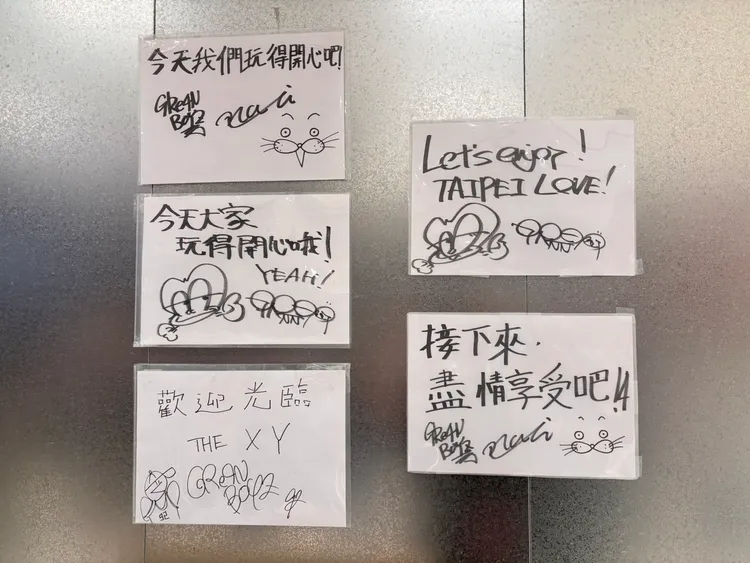 今天我們玩得開心吧!
GReeN
BoYZ navi
今天大家
玩得開心哦!
YEAH!
歡迎光臨
THE X Y
GReeN
BoYZ 92
92
Let's enjoy!
TAIPEI LOVE!
接下來,
盡情享受吧!!
GReeN
BoYZ navi